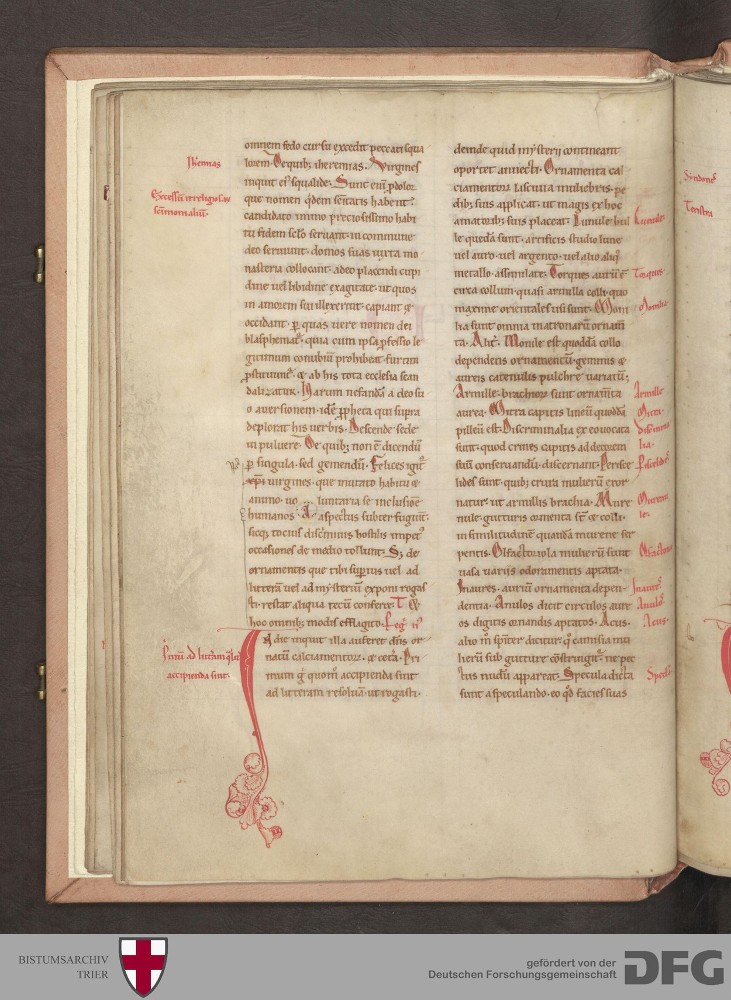 omnem fedo cursu excedit peccati squa
lorem. De quib; iheremias. Virgines
inquit ei' squalide. Sunt eni p dolor
que nomen qdem scitatis habent.
candidato immo preciosissimo habi
tu fidem
seruant in commune
deo seruiunt. domos suas iuxta mo
nasteria collocant. adeo placendi cupi
dine uel libidine exagitate. ut quos
in amorem sui illexerint. capiant &
occidant. p quas uere nomen dei
blasphemat. quia cum ipsa pfessio le
gitimum conubiu prohibeat. furtim
& ab his tota ecclesia scan
dalizatur. Harum nefanda a deo su
o auersionem. ide ppheta qui supra
deplorat his uerbis. Descende sede
in puluere. De quib; non e dicendu
p singula. sed gemendu. Felices igit
uirgines. que mutato habitu &
animo. uo luntaria se inclusione
humanos aspectus subterfugiunt.
sicq; tocius discriminis hostilis
occasiones de medio tollunt. S; de
ornamentis que tibi superius uel ad
littera uel ad mysteriu exponi rogas
ti. restat aliqua tecu conferre. T.
hoc omnib; modis efflagito.
die inquit illa auferet dns or
natu calciamentoru. & cetera. Pri
mum g quom accipienda sint
ad litteram resoluam. ut rogasti.
Iheremias
Excessu
accipienda sint.
deinde quid mysterii contineant
oportet annecti. Ornamenta cal
ciamentoru lasciuia muliebris. pe
dib; suis applicat. ut magis ex hoc
amatorib; suis placeat. Lunule bul
le queda sunt. artificis studio lune
uel auro. uel argento. uel alio aliq
metallo. assimilate. Torques auru e
circa collum. quasi armilla colli. quo
maxime orientales usi sunt. Moni
lia sunt omnia matronaru ornam
ta. Alit. Monile est quodda collo
dependens ornamentu. gemmis &
aureis catenulis pulchre uariatu.
Armille. brachiorum sunt ornamta
aurea. Mitra capitis lineu quodda
pilleu est. Discriminalia ex eo uocata
sunt. quod crines capitis ad decorem
sui conseruandu discernant. Perisce
lides sunt. quib; crura mulieru exor
nantur ut armillis brachia. Mure
nule. gutturis ornamenta st & colli.
in similitudine quanda murene ser
pentis. Olfactoriola mulieru sunt
uasa uariis odoramentis aptata.
Inaures. auriu ornamenta depen
dentia. Anulos dicit circulos aure
os digitis ornandis aptatos. Acus.
alio dicitur. q camisia mu
lieru sub gutture constringit. ne pec
tus nudu appareat. Specula dicta
sunt a speculando. eo qd facies suas
Lunule
Torques
Monilia
Armille
Mitra
Discrimina
lia.
Murenu
le.
Inaures
Anulos
Acus.
Specula
Syndones
Teristra
BISTUMSARCHIV
TRIER
gefördert von der
Deutschen Forschungsgemeinschaft
DFG